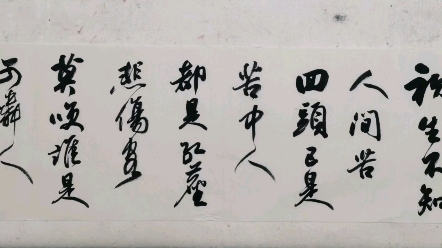 初生不知
人间苦
回頭已是
苦中人
都是红塵
悲傷客
莫笑誰是
可憐人